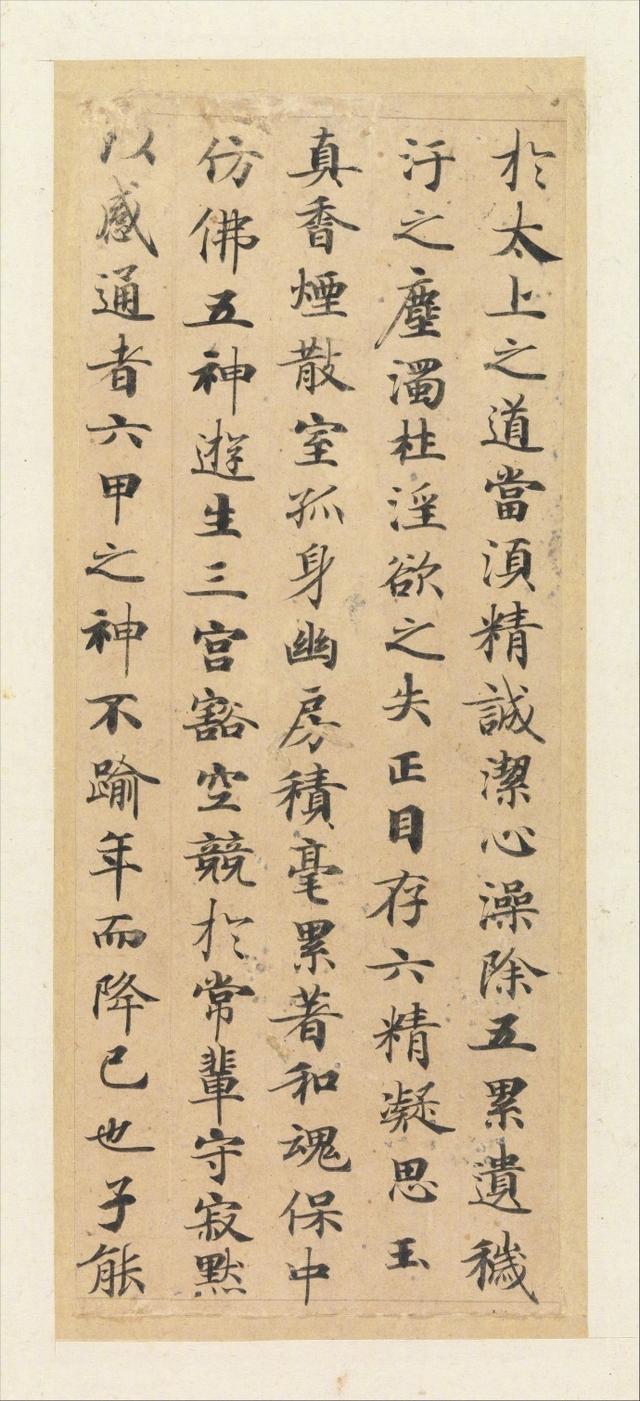 於太上之道當湏精誠潔心澡除五累遺穢
汙之塵濁杜淫欲之失正目存六精凝思玉
真香煙散室孤身幽房積毫累著和魂保中
仿佛五神遊生三宮豁空競於常輩守寂默
以感通者六甲之神不踰年而降已也子能